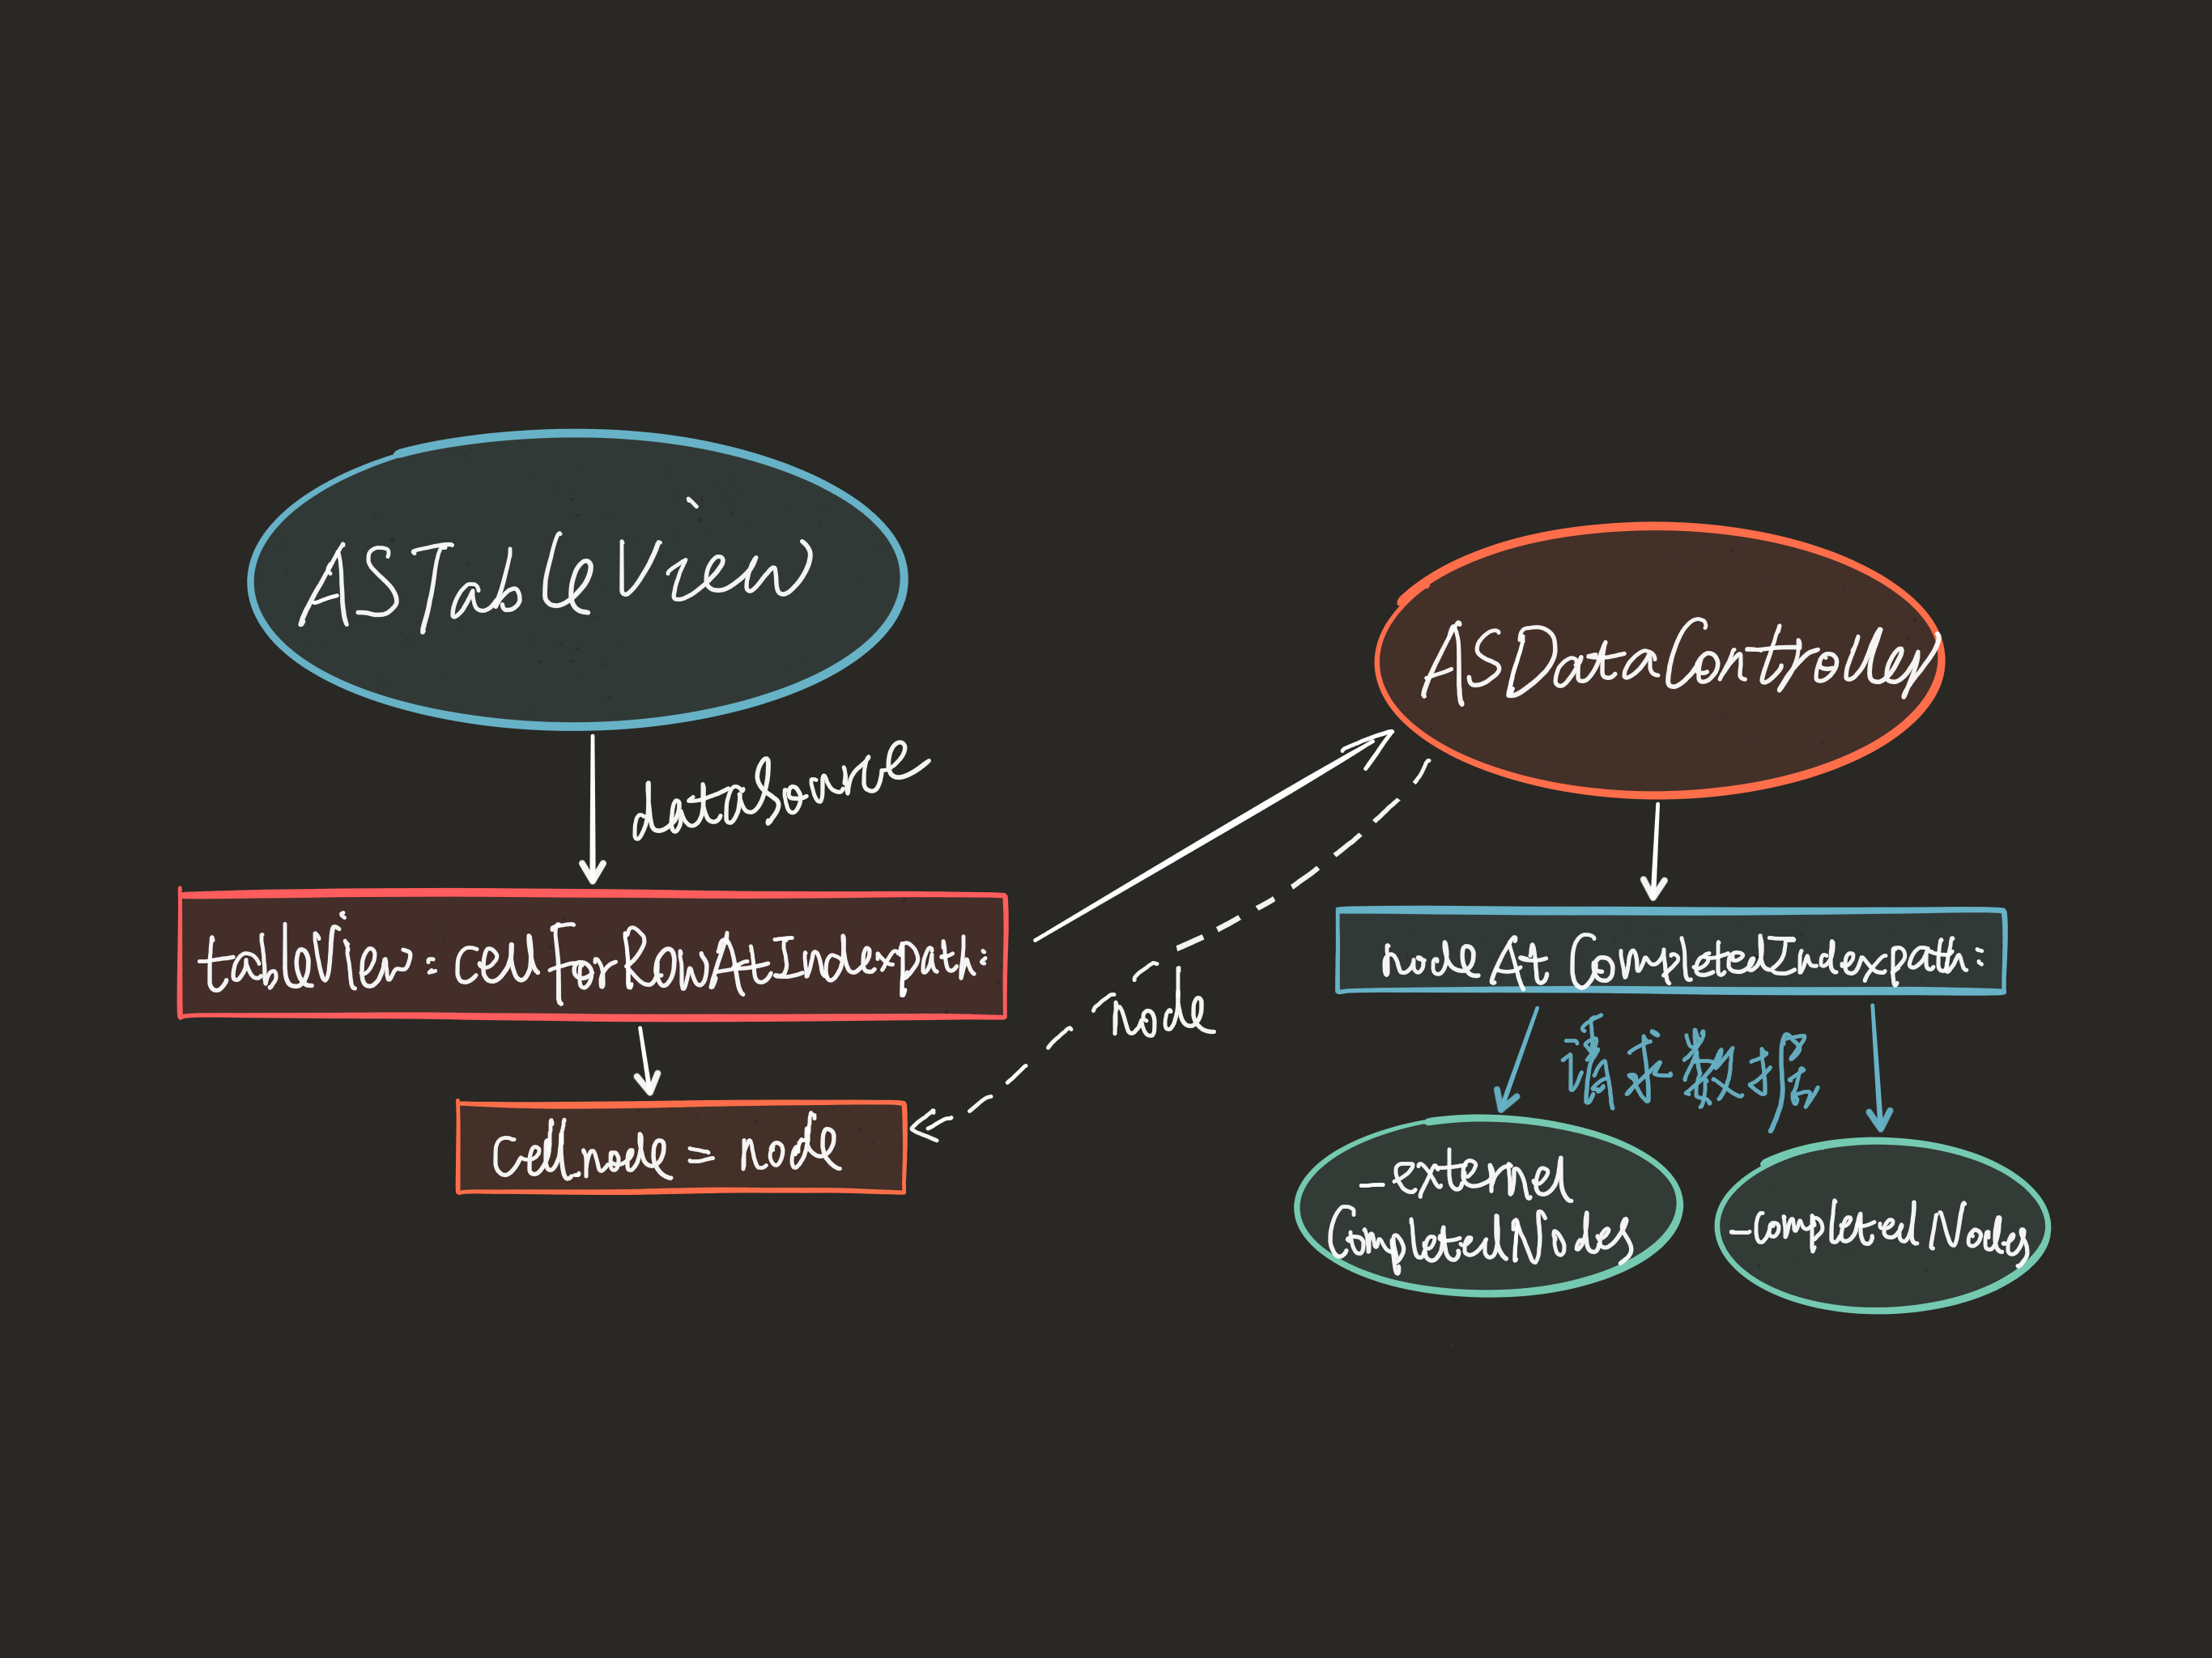 ASTableView
dataSource
tableView:cellForRowAtIndexpath:
cell.node = node
node
ASDataController
nodeAtCompletedIndexpath:
請求数据
_external
CompletedNodes
_completedNodes